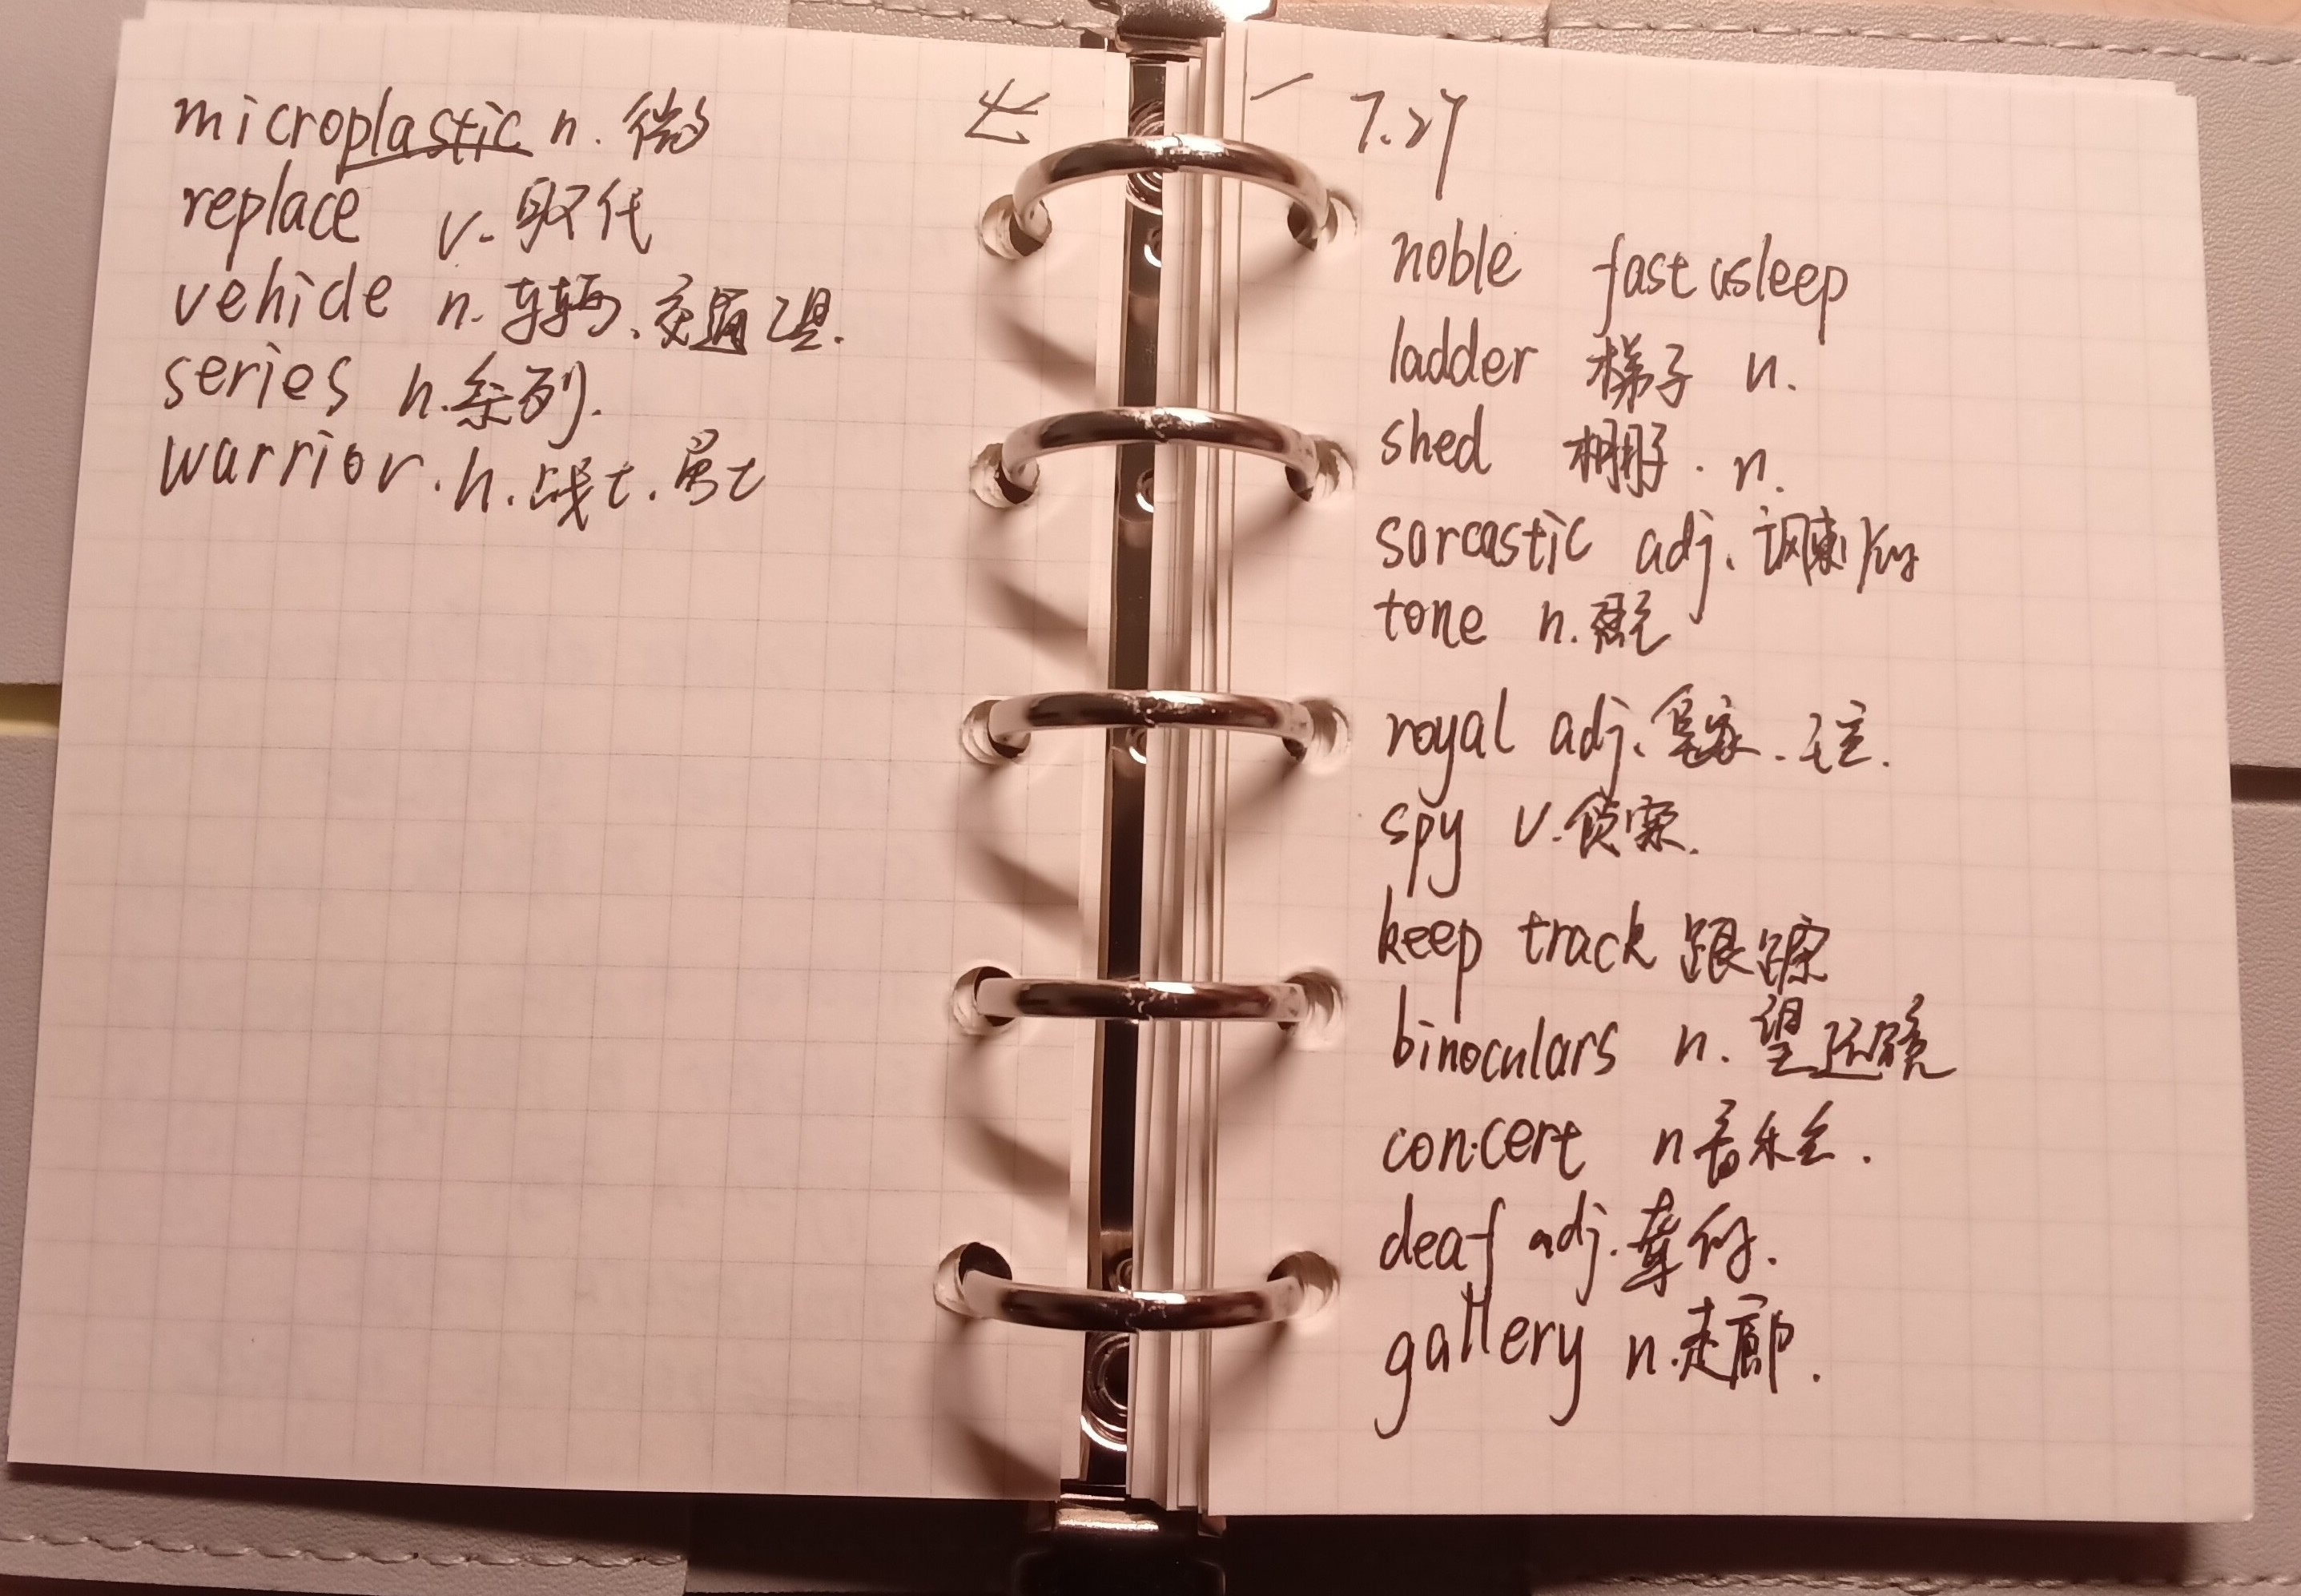 microplastic n. 微
replace v. 取代
vehicle n. 车辆、交通工具.
series n. 系列.
warrior. n. 战士. 勇士
7.27
noble fast asleep
ladder 梯子 n.
shed 棚子. n.
sarcastic adj. 讽刺的
tone n. 语气
royal adj. 皇家.
spy v. 侦察.
keep track 跟踪
binoculars n. 望远镜
concert n 音乐会.
deaf adj. 聋的.
gallery n. 走廊.